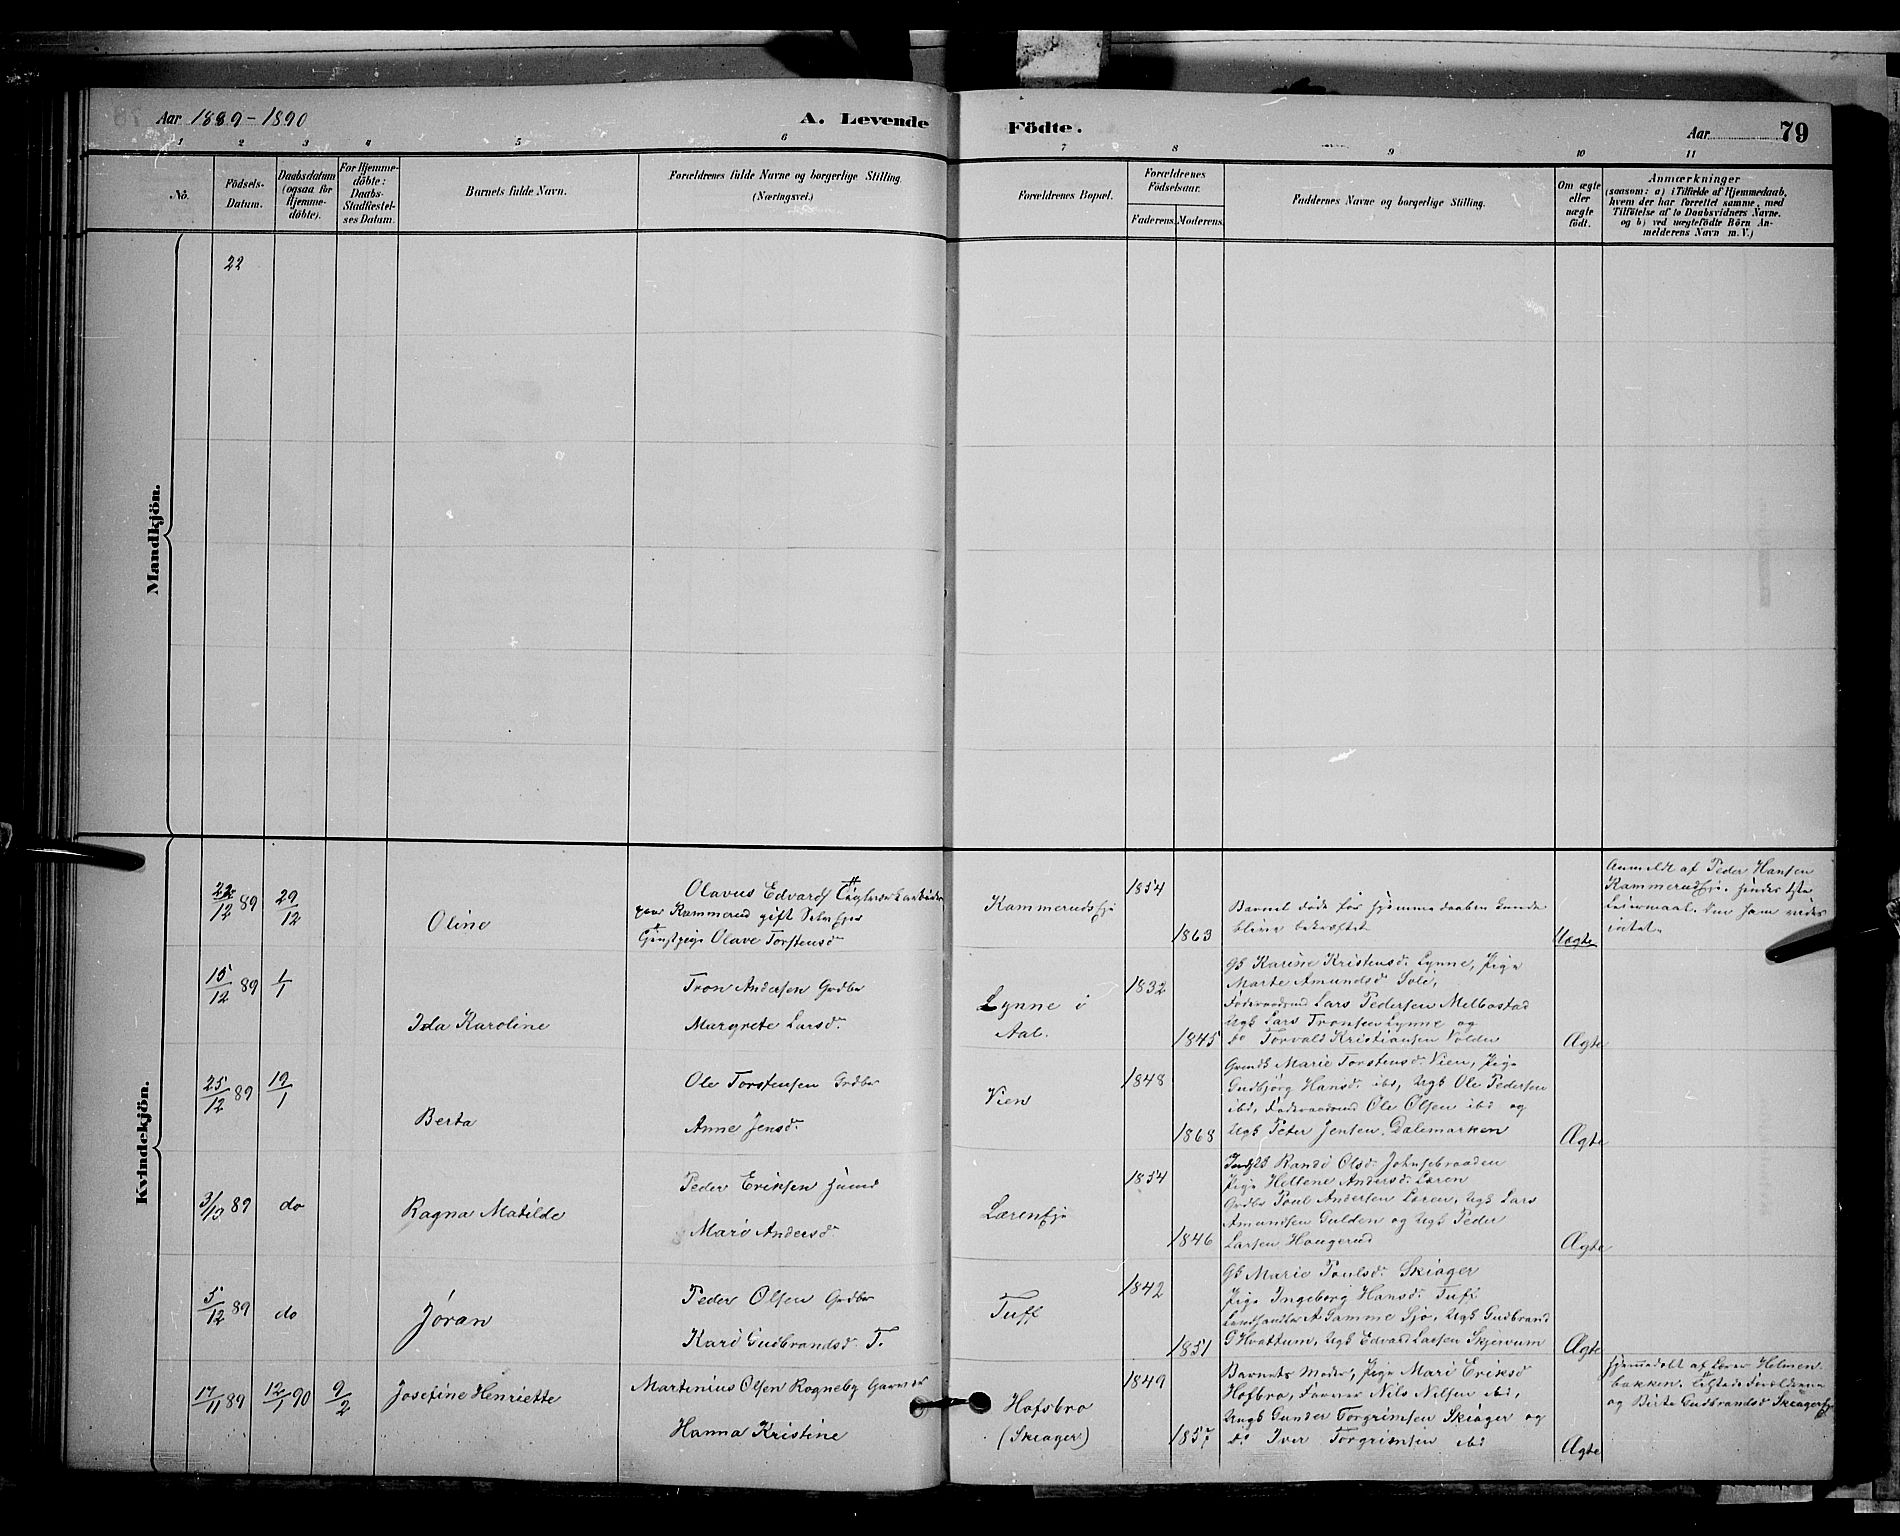 Aar 1889-1890
A. Levende Födte.
Aar 79
1 2 3 4 5 6 7 8 9 10 11
No.
Födsels-Datum.
Daabsdatum (ogsaa for Hjemme-döbte).
For Hjemme-döbte: Daabs-Stadfæstel-ses Datum.
Barnets fulde Navn.
Forældrenes fulde Navne og borgerlige Stilling.
(Næringsvei.)
Forældrenes Bopæl.
Forældrenes Födselsaar.
Faderens. Moderens.
Faddernes Navne og borgerlige Stilling.
Om ægte eller uægte födt.
Anmærkninger
(saasom: a) i Tilfælde af Hjemmedaab,
hvem der har forrettet samme, med
Tilföielse af to Daabsvidners Navne.
og b) ved uægtefödte Börn An-
melderens Navn m. V.)
Mandkjön.
22
Kvindekjön.
22/12 89 29/12
Oline
Olavus Edvards
paa Kammerud gift Selveier
Olave Torstensd
Kammerudseje
1854
1863
Barnet døde før hjemmedaaben kunde
blive bekræftet
Uægte
Anmeldt af Peder Hansen
Kammerudseje. hendes 1ste
Leiermaal.
intet.
15/12 89 1/1
Ida Karoline
Tron Andersen Grdbr
Margrete Larsd.
Lynne i
Aal.
1832
1845
Gb Karine Kristensd. Lynne, Pige
Marte Amundsd Sole,
Lars Pedersen Melbostad
Ugb Lars Tronsen Lynne og
do Torvald Kristiansen Volden
Ægte
25/12 89 19/1
Berta
Ole Torstensen Grdbr
Anne Jensd.
Vien
1848
1868
Marie Torstensd. Vien, Pige
Gudbjörg Hansd. ibd, Ugb Ole Pedersen
ibd, Ole Olsen ibd og
Ugb Peter Jensen Dalemarken
Ægte
3/10 89 do
Ragna Matilde
Peder Eriksen
Mari Andersd.
Lærenseje
1854
1846
Randi Olsd. Johnsebraaden
Pige Hellene Andersd. Løren
Grdbr Poul Andersen Løren, Ugb Lars
Amundsen Gulden og Ugb Peder
Larsen Haugerud
Ægte
5/12 89 do
Jøran
Peder Olsen Grdbr
Kari Gudbrandsd. T.
Tuff
1842
1851
Gb Marie Poulsd. Skiager
Pige Ingeborg Hansd. Tuff
Landhandler A Gamme Sjo, Ugb Gudbrand
G Hvattum, Ugb Edvard Larsen Skjervum
Ægte
17/11 89 12/1 90 9/2
Josefine Henriette
Martinius Olsen Rogneby Garver
Hanna Kristine
Hofsbro
(Skiager)
1849
1857
Barnets Moder, Pige Mari Eriksd
Hofbro, Farver Nils Nilsen ibd,
Ungk Gunder Torgrimsen Skiager og
do Iver Torgrimsen ibd
Ægte
Hjemmedøbt af Lærer Holmen
bakken. Tilstede Forældrene
og Birte Gudbrandsd Skiagerseje